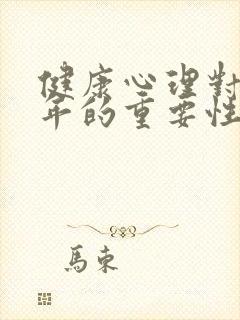 健康心理對
年的重要性
馬東